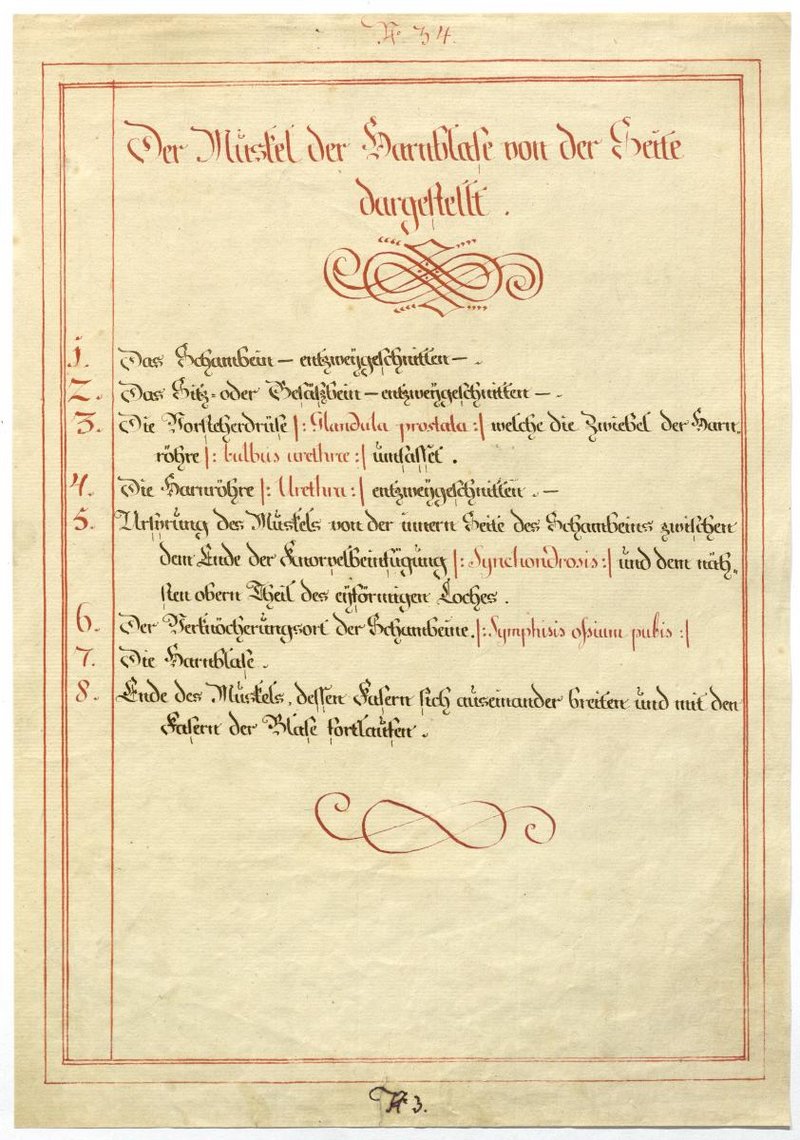 No 34.
Der Muskel der Harnblase von der Seite
dargestellt.
1. Das Schambein – entzweygeschnitten – .
2. Das Sitz= oder Gesäßbein – entzweygeschnitten – .
3. Die Vorsteherdrüse |: Glandula prostata :| welche die Zwiebel der Harn=
röhre |: bulbus urethræ :| umfasset.
4. Die Harnröhre |: Urethra :| entzweygeschnitten. –
5. Ursprung des Muskels von der innern Seite des Schambeins zwischen
dem Ende der Knorpelbeinfügung |: Synchondrosis :| und dem näch=
sten obern Theil des eyförmigen Loches.
6. Der Verknöcherungsort der Schambeine. |: Symphisis ossium pubis :|
7. Die Harnblase.
8. Ende des Muskels, dessen Fasern sich auseinander breiten und mit den
Fasern der Blase fortlaufen.
3.